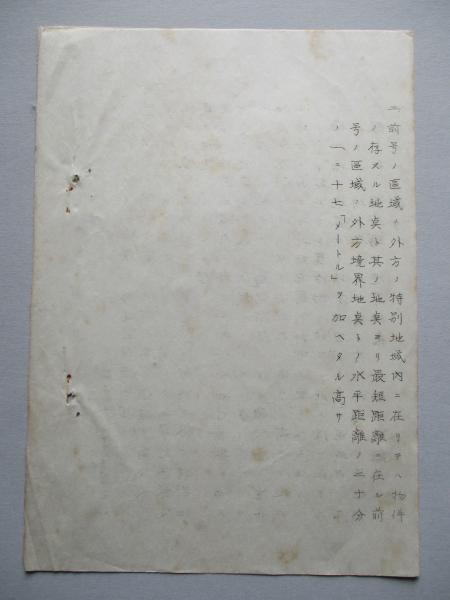 二 前号ノ区域ノ外方ノ特別地域内ニ在リテハ物件
ノ存スル地点ト其ノ地点ヨリ最短距離ニ在ル前
号ノ区域ノ外方境界地点トノ水平距離ノ二十分
ノ一ニ十七「メートル」ヲ加ヘタル高サ